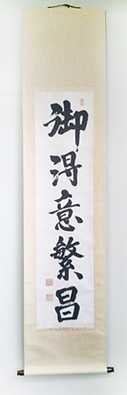 御得意繁昌